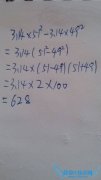 3.14×51²-3.14×49²
=3.14(51²-49²)
=3.14×(51-49)(51+49)
=3.14×2×100
=628